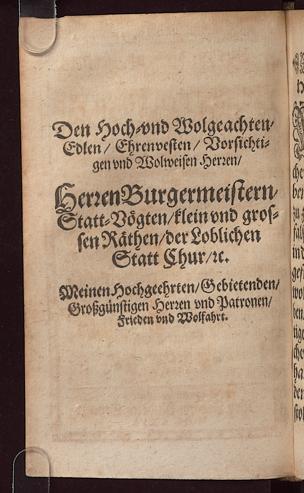 Den Hoch- vnd Wolgeachten/
Edlen/ Ehrenvesten/ Vorsichti-
gen vnd Wolweisen Herren/
Herren Burgermeistern/
Statt-Vögten/ klein vnd gros-
sen Räthen/ der Loblichen
Statt Chur/ ꝛc.
Meinen Hochgeehrten/ Gebietenden/
Großgünstigen Herren vnd Patronen/
Frieden vnd Wolfahrt.